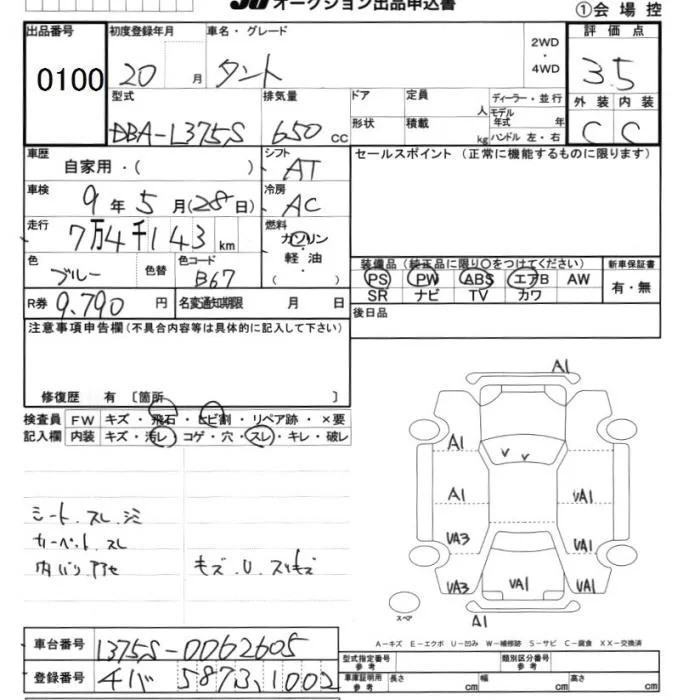 JU オークション出品申込書
①会場控
出品番号 初度登録年月 車名・グレード 2WD・4WD 評価点
0100 20 月 タント 3.5
型式 排気量 ドア 定員 人 ディーラー・並行 外装 内装
DBA-L375S 650 cc 形状 積載 kg モデル年式 年 ハンドル 左・右 C C
車歴 シフト セールスポイント (正常に機能するものに限ります)
自家用・( ) AT
車検 冷房
9年5月(28日) AC
走行 燃料
7万4千143km ガソリン
軽油・
( )
色 色替 色コード 装備品 (純正品に限り○をつけてください) 新車保証書
ブルー B67 PS PW ABS エアB AW 有・無
SR ナビ TV カワ
R券 9,790 円 名変通知期限 月 日 後日品
注意事項申告欄 (不具合内容等は具体的に記入して下さい)
修復歴 有 〔箇所 〕
検査員 FW キズ・飛石・ヒビ割・リペア跡・×要
記入欄 内装 キズ・汚レ・コゲ・穴・スレ・キレ・破レ
A1
A1
A1 UA1
UA3 UA1
UA3 UA1 UA1
A1
シート スレ シミ
カーペット スレ
内バリ アセ キズ・U・スリキズ
スペア
A-キズ E-エクボ U-凹み W-補修跡 S-サビ C-腐食 XX-交換済
車台番号 L375S-0062605
登録番号
型式指定番号 参考 類別区分番号 参考
車庫証明用 参考 長さ cm 幅 cm 高さ cm